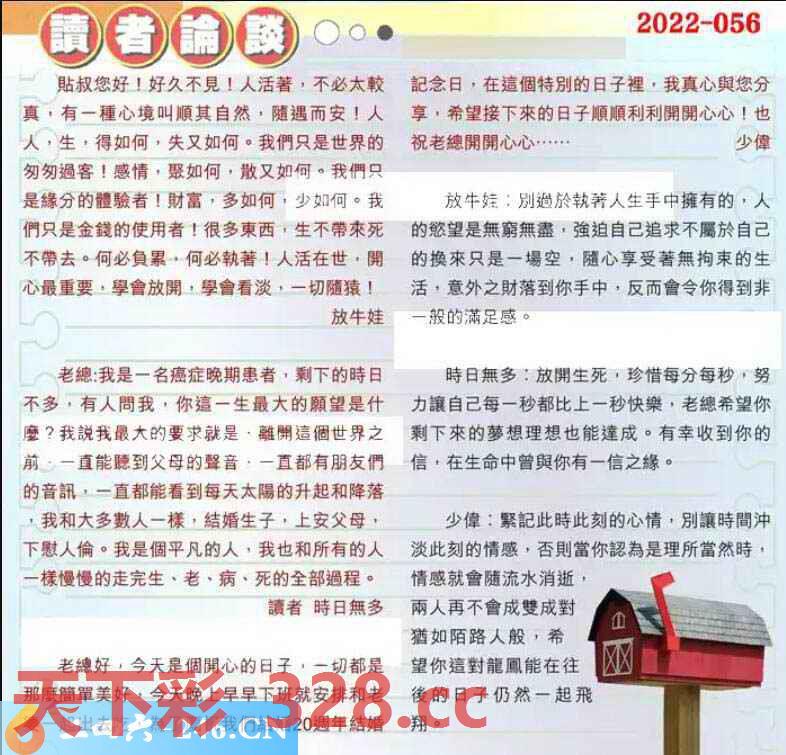 讀者論談
2022-056
貼叔您好！好久不見！人活著，不必太較
真，有一種心境叫順其自然，隨遇而安！人
人，生，得如何，失又如何。我們只是世界的
匆匆過客！感情，聚如何，散又如何。我們只
是緣分的體驗者！財富，多如何，少如何。我
們只是金錢的使用者！很多東西，生不帶來死
不帶去。何必負累，何必執著！人活在世，開
心最重要，學會放開，學會看淡，一切隨猿！
放牛娃
老總:我是一名癌症晚期患者，剩下的時日
不多，有人問我，你這一生最大的願望是什
麼？我説我最大的要求就是，離開這個世界之
前，一直能聽到父母的聲音，一直都有朋友們
的音訊，一直都能看到每天太陽的升起和降落
，我和大多數人一樣，結婚生子，上安父母，
下慰人倫。我是個平凡的人，我也和所有的人
一樣慢慢的走完生、老、病、死的全部過程。
讀者 時日無多
老總好，今天是個開心的日子，一切都是
那麼簡單美好，今天晚上早早下班就安排和老
我們結婚20週年結婚
記念日，在這個特別的日子裡，我真心與您分
享，希望接下來的日子順順利利開開心心！也
祝老總開開心心⋯⋯ 少偉
放牛娃：別過於執著人生手中擁有的，人
的慾望是無窮無盡，強迫自己追求不屬於自己
的換來只是一場空，隨心享受著無拘束的生
活，意外之財落到你手中，反而會令你得到非
一般的滿足感。
時日無多：放開生死，珍惜每分每秒，努
力讓自己每一秒都比上一秒快樂，老總希望你
剩下來的夢想理想也能達成。有幸收到你的
信，在生命中曾與你有一信之緣。
少偉：緊記此時此刻的心情，別讓時間沖
淡此刻的情感，否則當你認為是理所當然時，
情感就會隨流水消逝，
兩人再不會成雙成對
猶如陌路人般，希
望你這對龍鳳能在往
後的日子仍然一起飛
翔
天下彩-328.cc
246.CN